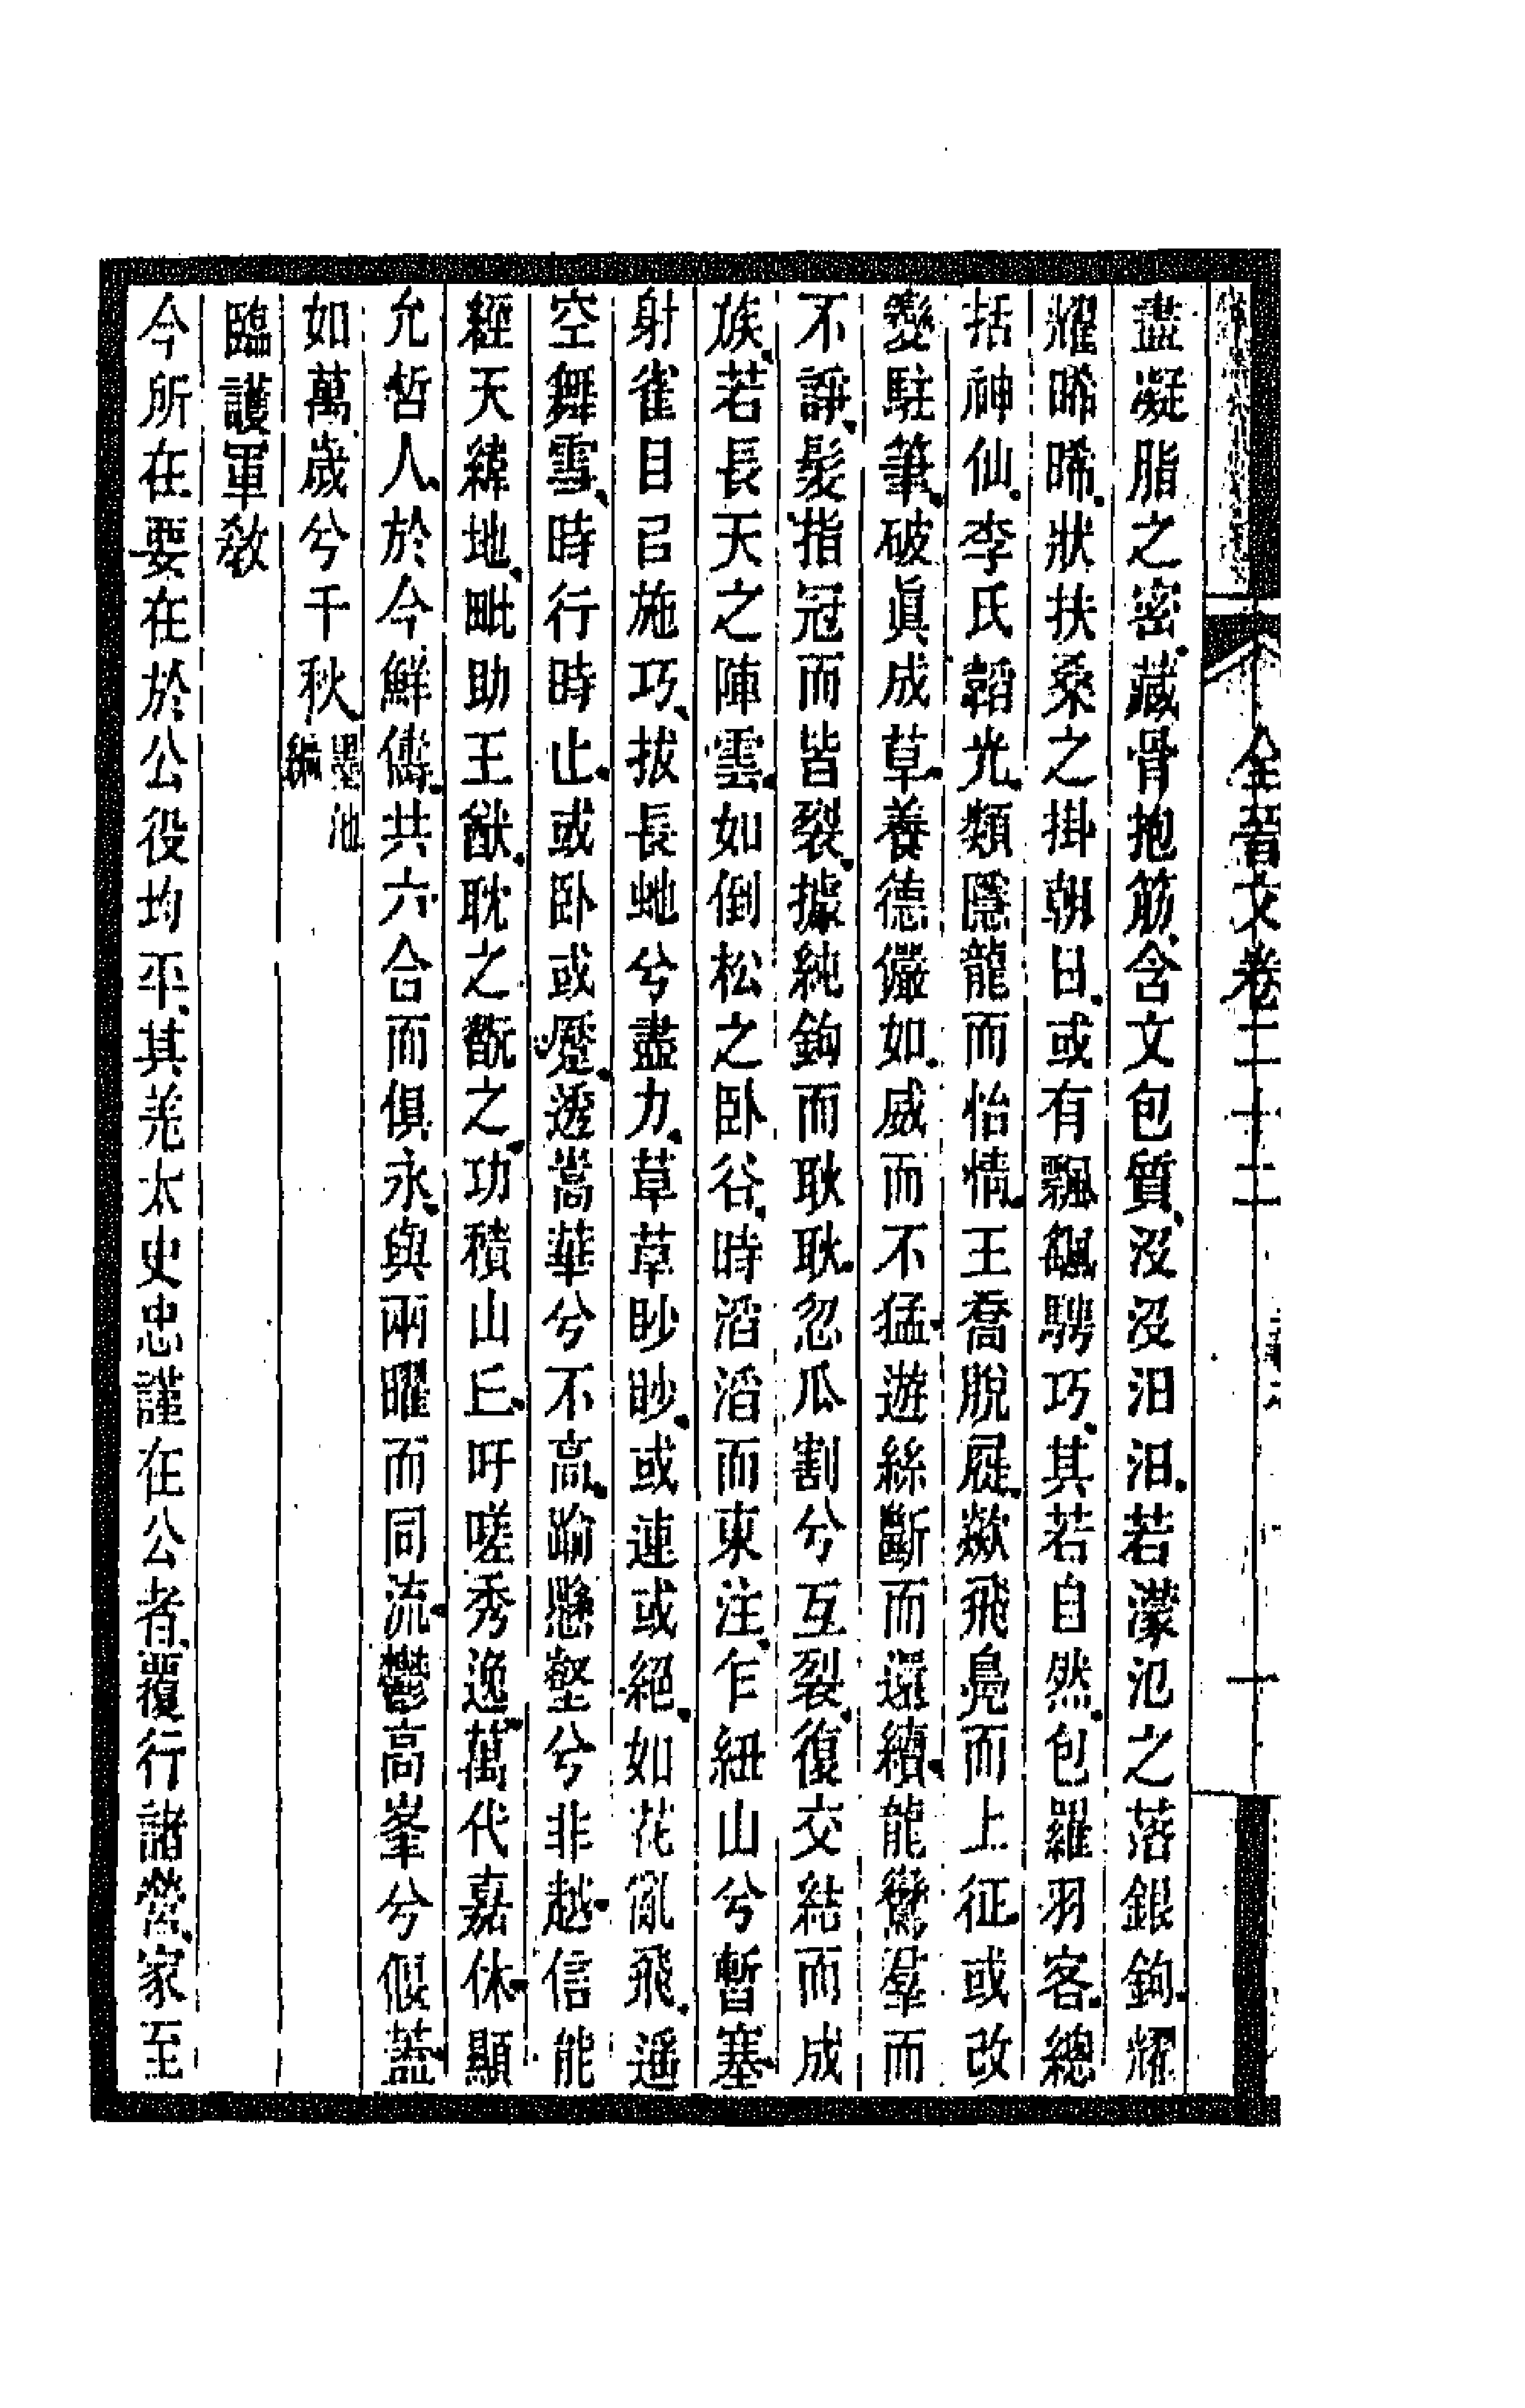 全晉文卷二十二
十
盡凝脂之密藏骨抱筋含文包質沒沒汩汩若濛氾之落銀鉤耀
耀晞晞狀扶桑之掛朝日或有飄颻騁巧其若自然包羅羽客總
括神仙李氏韜光類隱龍而怡情王喬脫屣歘飛鳧而上征或改
變駐筆破眞成草養德儼如威而不猛遊絲斷而還續龍鸞羣而
不諍髮指冠而皆裂據純鉤而耿耿忽瓜割兮互裂復交結而成
族若長天之陣雲如倒松之臥谷時滔滔而東注乍紐山兮暫塞
射雀目㠯施巧拔長虵兮盡力草草眇眇或連或絕如花亂飛遥
空舞雪時行時止或臥或蹷透嵩華兮不高踰懸壑兮非越信能
經天緯地毗助王猷耽之翫之功積山丘吁嗟秀逸萬代嘉休顯
允哲人於今鮮儔共六合而俱永與兩曜而同流鬱高峯兮偃蓋
如萬歲兮千秋墨池編
臨護軍敎
今所在要在於公役均平其羌太史忠謹在公者覆行諸營家至